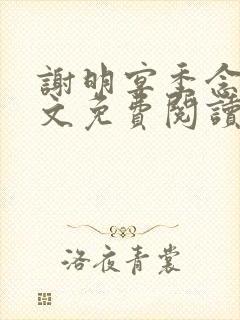 謝明宴季念
文免費閱讀
洛夜青裳